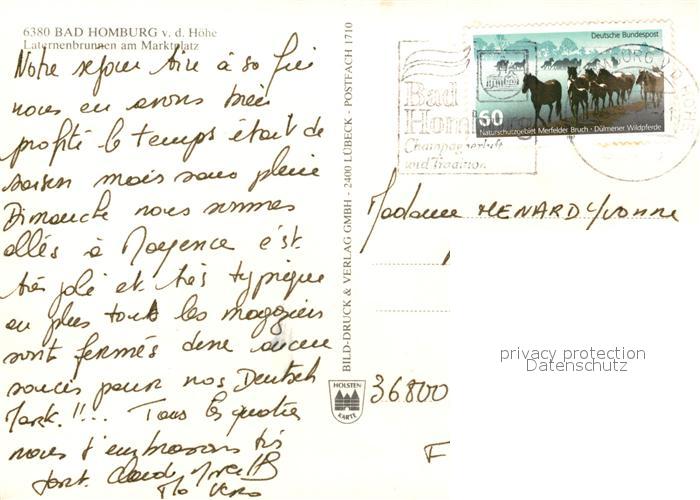 6380 BAD HOMBURG v. d. Höhe
Laternenbrunnen am Marktplatz
Notre séjour tire à sa fin
nous en avons bien
profité le temps était de
saison mais sans pluie
Dimanche nous sommes
allés à Mayence c'est
très joli et très typique
en plus tout les magazins
sont fermés donc aucun
soucis pour nos Deutsch
Mark.!!... Tous les quatres
nous t'embrassons très
fort. Claude
Flo
BILD-DRUCK & VERLAG GMBH - 2400 LÜBECK - POSTFACH 1710
HOLSTEN
KARTE
Bad
Homburg
Champagnerluft
und Tradition
Deutsche Bundespost
60
Naturschutzgebiet Merfelder Bruch · Dülmener Wildpferde
Madame MENARD Yvonne
36800
F
privacy protection
Datenschutz